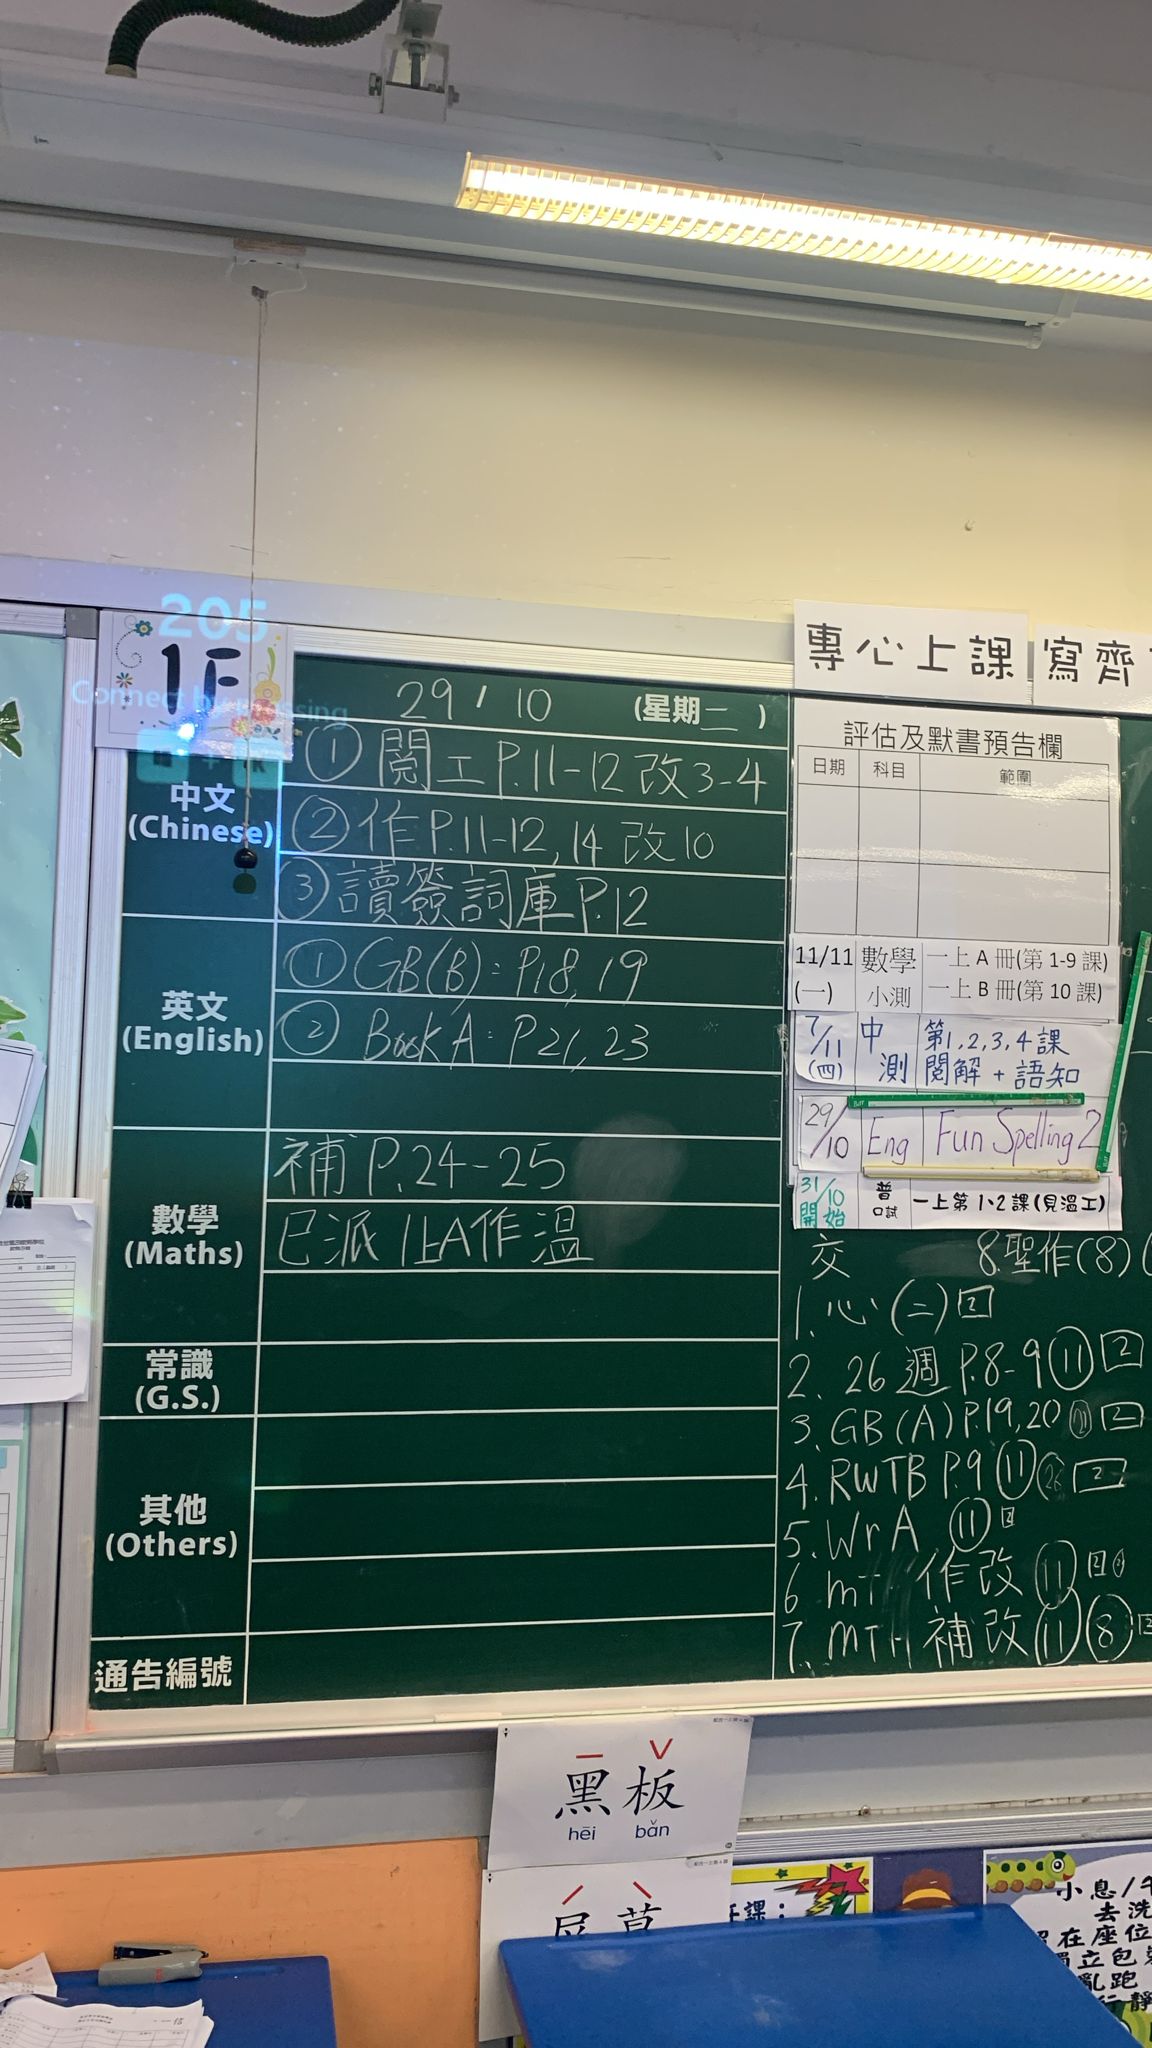 專心上課 寫齊
205
1F
29 / 10 (星期二)
中文
(Chinese)
① 閱工 P.11-12 改3-4
② 作 P.11-12, 14 改10
③ 讀簽詞庫 P.12
英文
(English)
① GB(B): P18, 19
② Book A: P 21, 23
數學
(Maths)
補 P.24-25
已派 1上A作溫
常識
(G.S.)
其他
(Others)
通告編號
評估及默書預告欄
日期 科目 範圍
11/11 數學 一上 A 冊(第 1-9 課)
(一) 小測 一上 B 冊(第 10 課)
7/11 中 第1,2,3,4課
(四) 測 閱解 + 語知
29/10 Eng Fun Spelling 2
31/10 普 一上第 1、2 課(見溫工)
開始 口試
交 8.聖作(8)
1. 心(二) 2
2. 26 週 P.8-9 11 2
3. GB (A) P.19, 20 2
4. RWTB P.9 11 26 2
5. WrA 11 2
6 mT 作改 11 2
7. MTH 補改 11 8
黑板
hēi bǎn
小息/
去洗
在座位
立包
亂跑
行靜